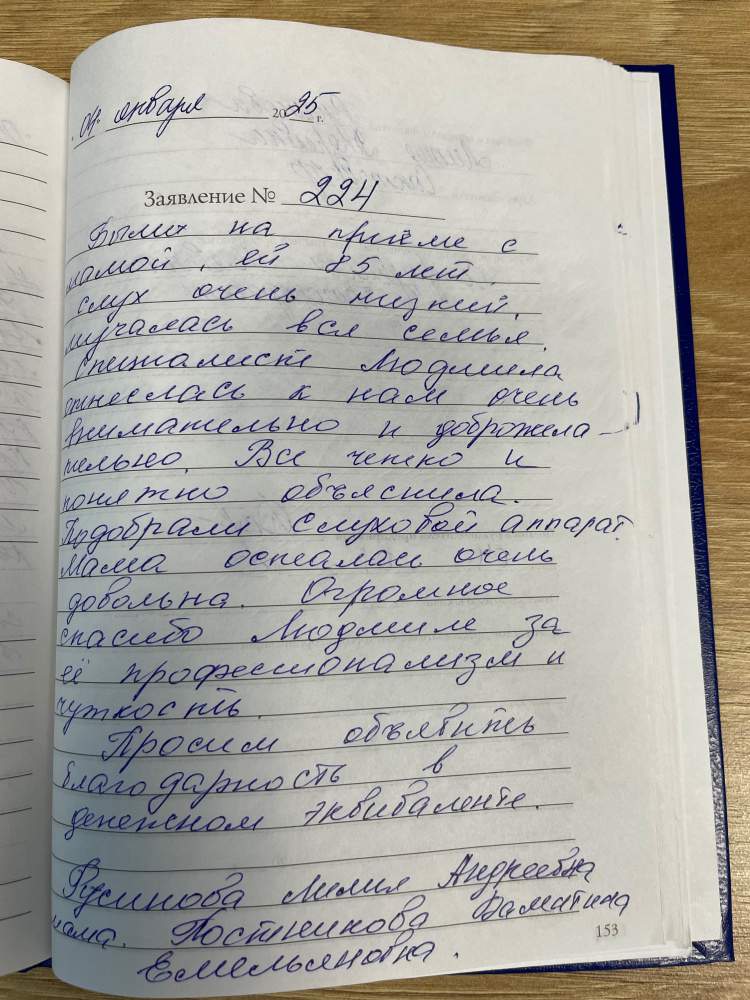 04. января 2025 г.
Заявление № 224
Были на приёме с
мамой, ей 85 лет.
слух очень низкий,
мучалась вся семья.
Специалист Людмила
отнеслась к нам очень
внимательно и доброжела-
тельно. Все четко и
понятно объяснила.
Подобрали слуховой аппарат.
Мама осталась очень
довольна. Огромное
спасибо Людмиле за
её профессионализм и
чуткость.
Просим объявить
благодарность в
денежном эквиваленте.
Русинова Лилия Андреевна
мама. Постникова
Емельяновна.
153